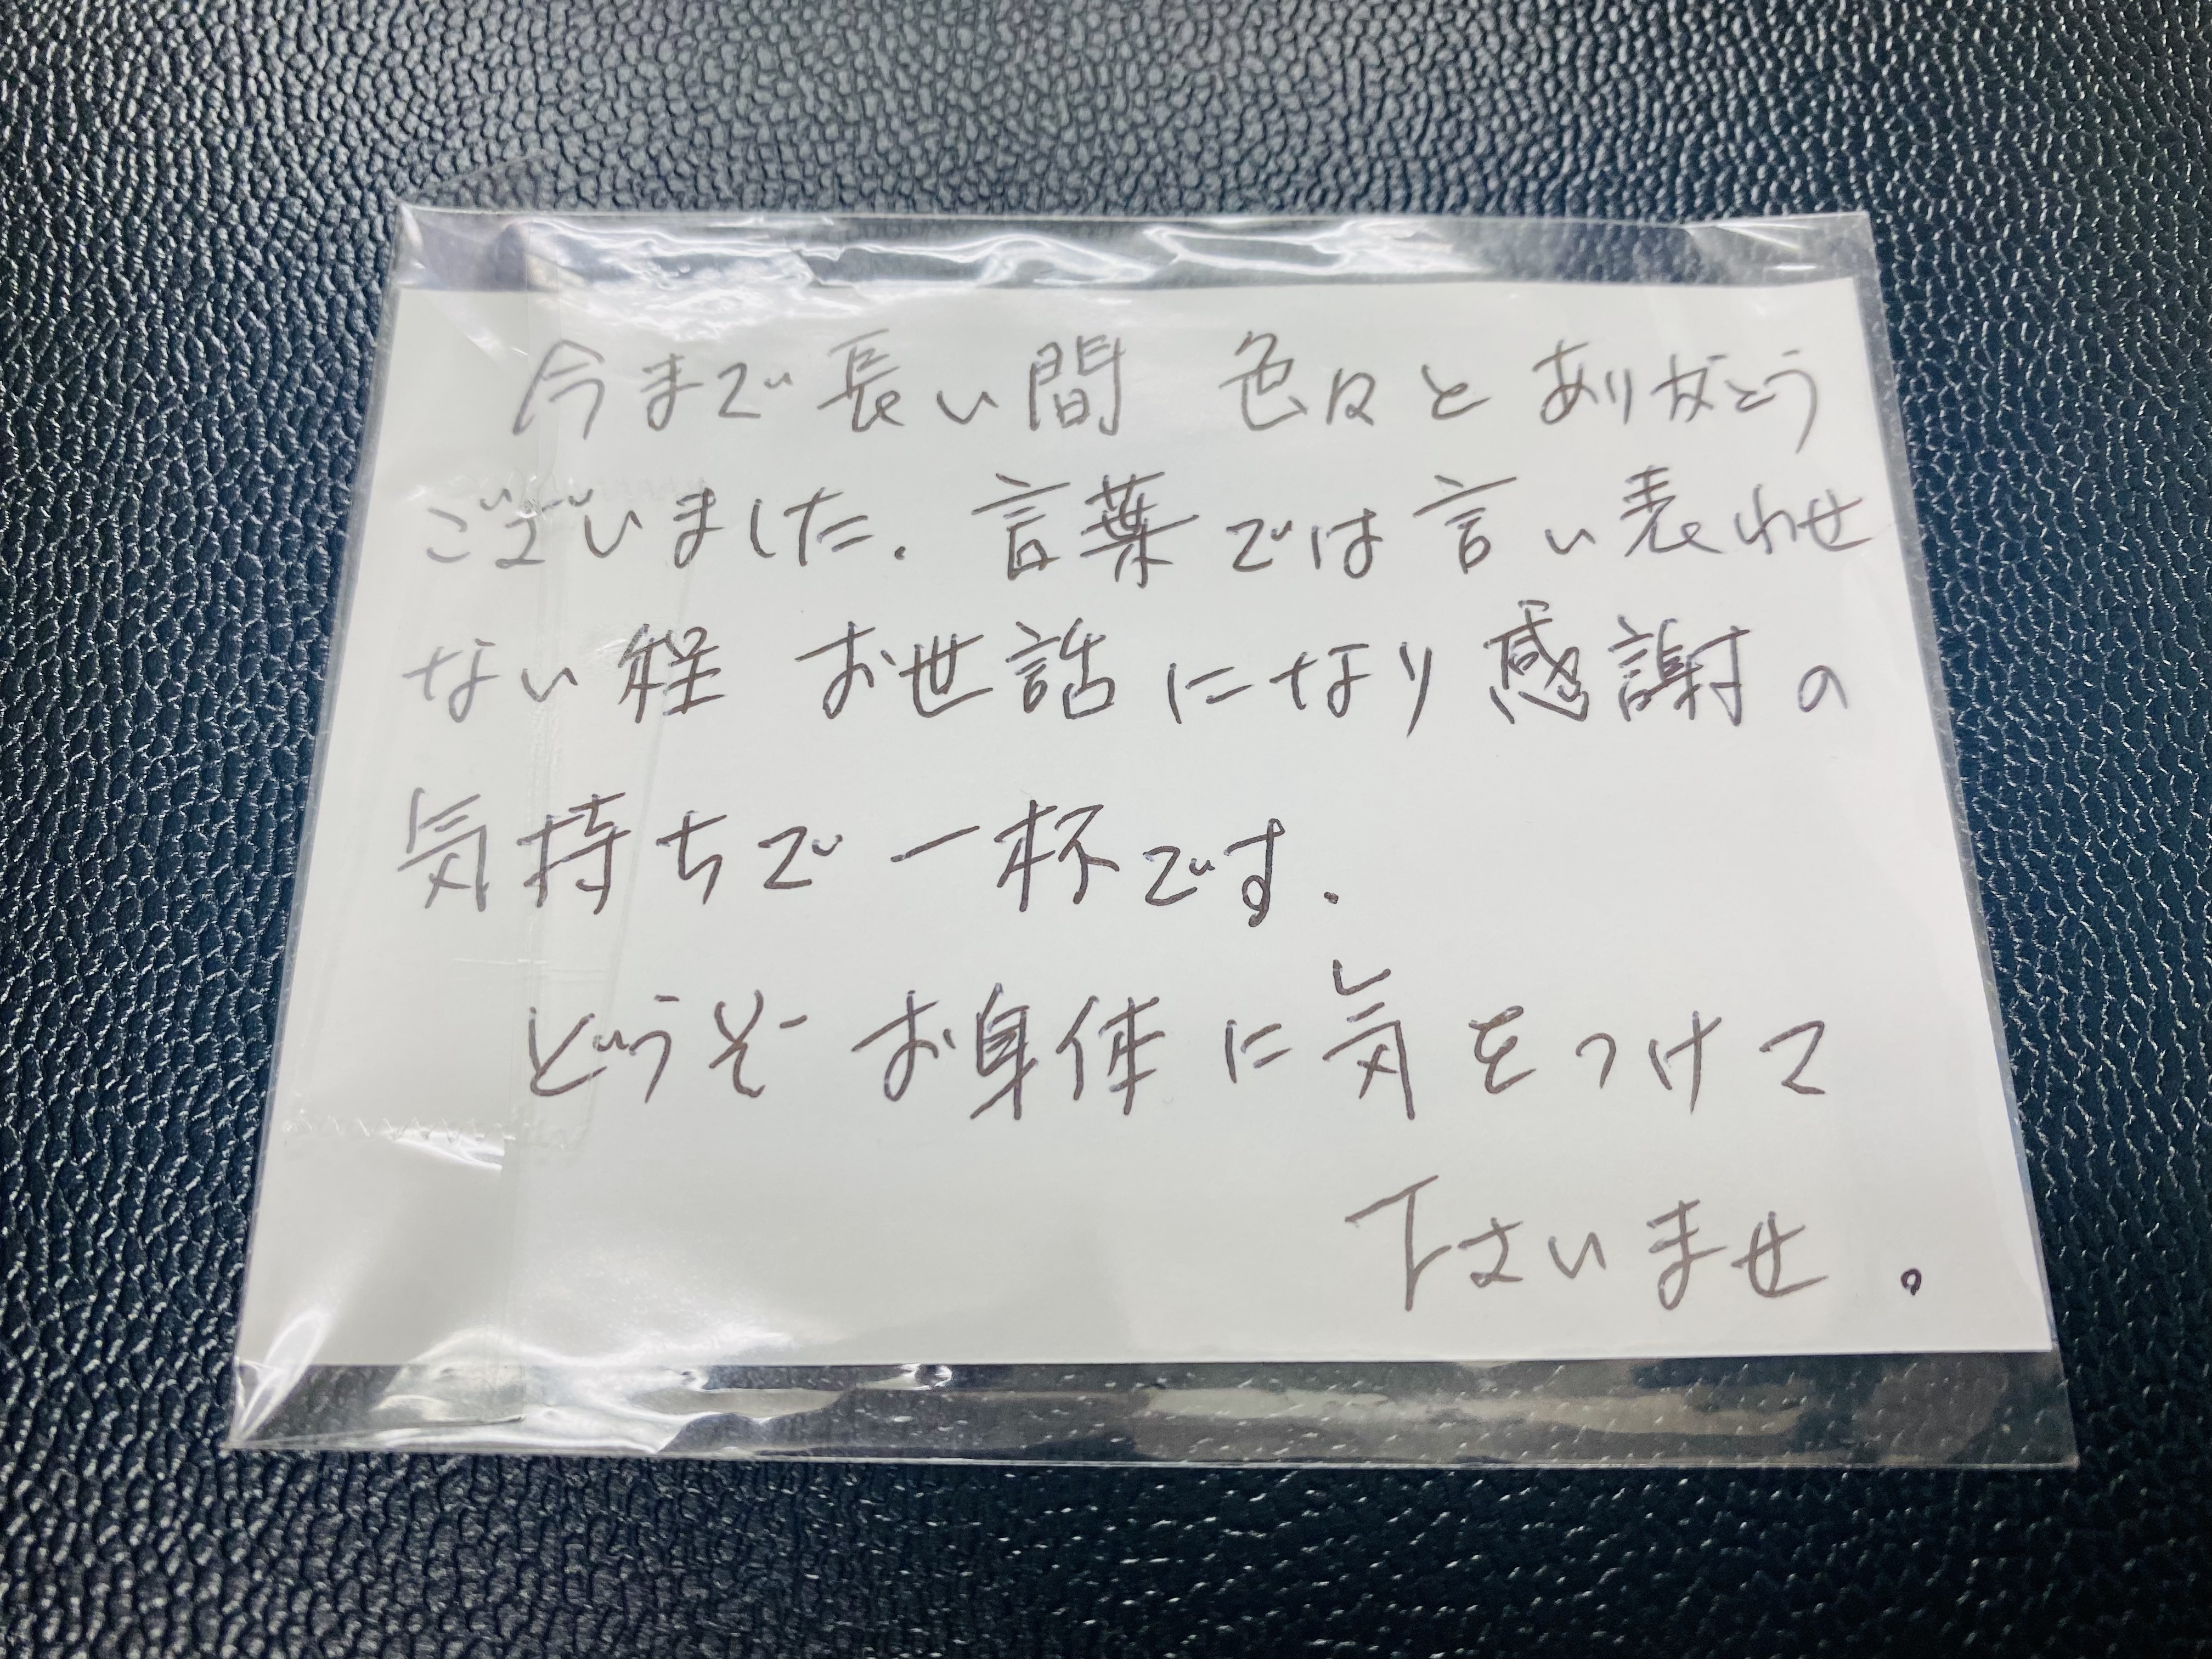 今まで長い間 色々とありがとう
ございました. 言葉では言い表わせ
ない程 お世話になり感謝の
気持ちで一杯です.
どうぞお身体に気をつけて
下さいませ。